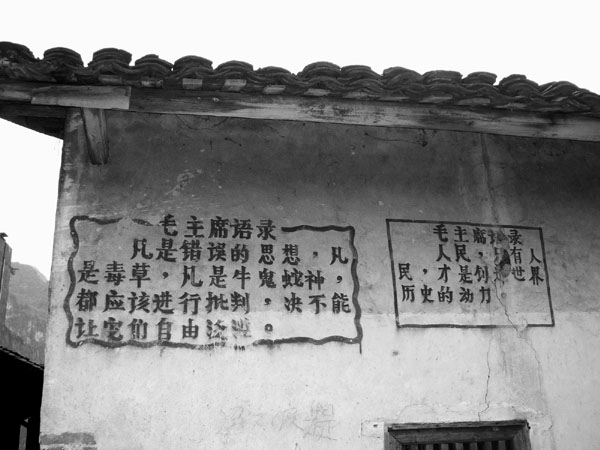 毛主席语录
凡是错误的思想，凡
是毒草，凡是牛鬼蛇神，
都应该进行批判，决不能
让它们自由泛滥。
毛主席语录
人民，有人
民，才是创世界
历史的动力